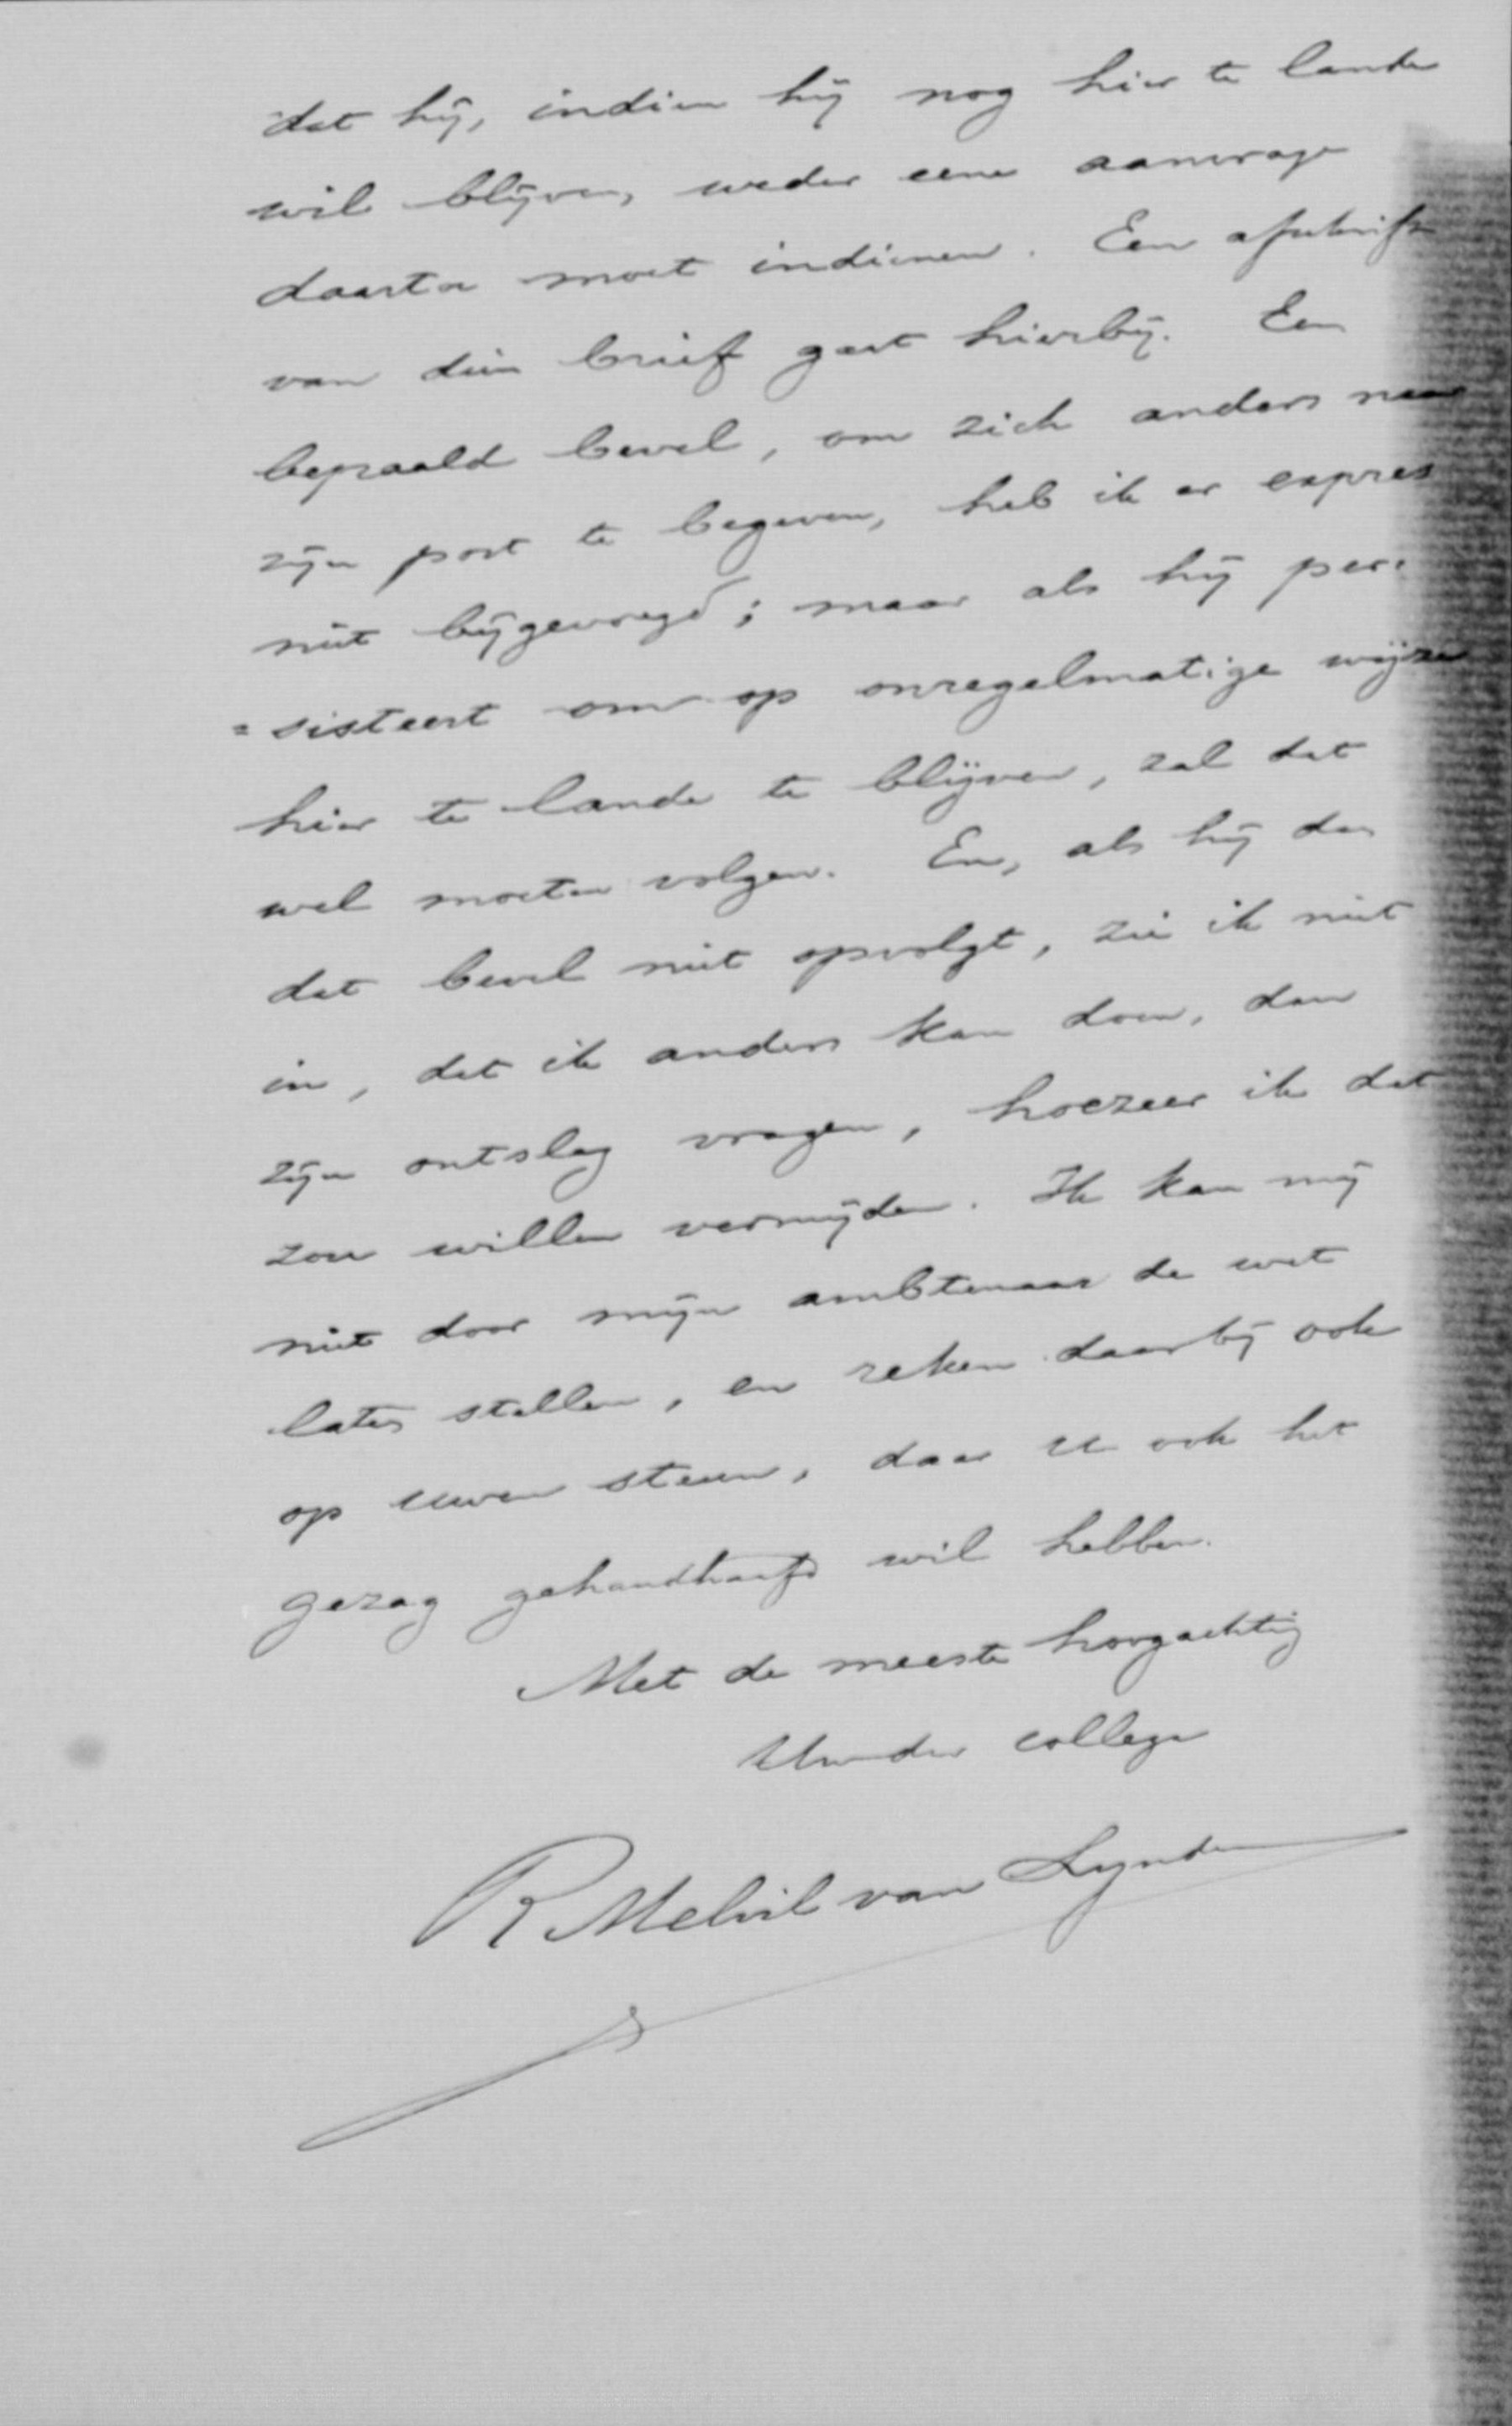 dat hij, indien hij nog hier te lande
wil blijven, weder eene aanvrage
daartoe moet indienen. Een afschrift
van dien brief gaat hierbij. Een
bepaald bevel, om zich anders naar
zijn post te begeven, heb ik er expres
niet bijgevoegd; maar als hij per:
=sisteert om op onregelmatige wijze
hier te lande te blijven, zal dat
wel moeten volgen. En, als hij dan
dat bevel niet opvolgt, zie ik niet
in, dat ik anders kan doen, dan
zijn ontslag vragen, hoezeer ik dat
zou willen vermijden. Ik kan mij
niet door mijn ambtenaar de wet
laten stellen, en reken daarbij ook
op uwen steun, daar U ook het
gezag gehandhaafd wil hebben.
Met de meeste hoogachting
Uwer college
R Melvil van Lynden